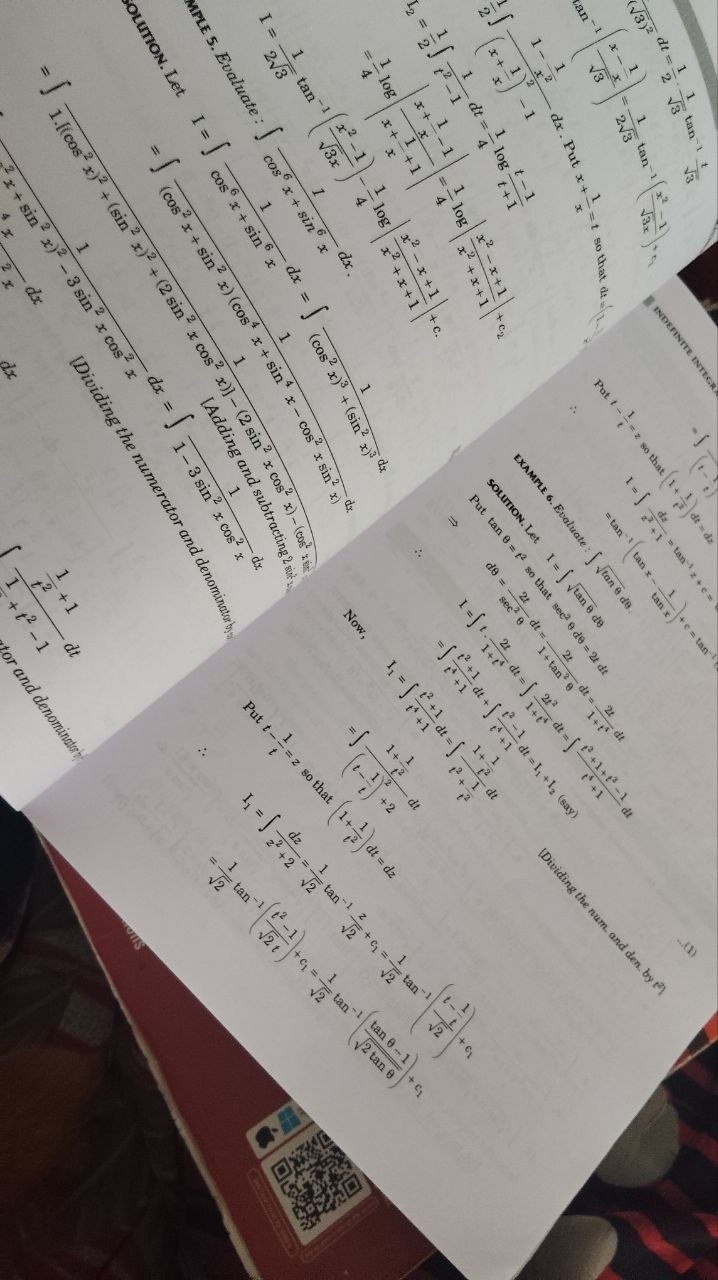 (√3)² dt = 1/2 · 1/√3 tan⁻¹ t/√3
tan⁻¹ ((x − 1/x)/√3) = 1/2√3 tan⁻¹ ((x² − 1)/√3x) + c₁
1/2 ∫ (1 − 1/x²)/((x + 1/x)² − 1) dx. Put x + 1/x = t so that dt =
I₂ = 1/2 ∫ 1/(t² − 1) dt = 1/4 log (t − 1)/(t + 1)
= 1/4 log |(x + 1/x − 1)/(x + 1/x + 1)| = 1/4 log |(x² − x + 1)/(x² + x + 1)| + c₂
I = 1/2√3 tan⁻¹ ((x² − 1)/√3x) − 1/4 log |(x² − x + 1)/(x² + x + 1)| + c.
MPLE 5. Evaluate : ∫ 1/(cos⁶ x + sin⁶ x) dx.
SOLUTION. Let I = ∫ 1/(cos⁶ x + sin⁶ x) dx = ∫ 1/((cos² x)³ + (sin² x)³) dx
= ∫ 1/((cos² x + sin² x)(cos⁴ x + sin⁴ x − cos² x sin² x)) dx
= ∫ 1/(1.[(cos² x)² + (sin² x)² + (2 sin² x cos² x)] − (2 sin² x cos² x) − (cos² x
[Adding and subtracting 2
x + sin² x)² − 3 sin² x cos² x dx = ∫ 1/(1 − 3 sin² x cos² x) dx
[Dividing the numerator and denominator by
dx
dx
∫ (1/t² + 1)/(1/t² + t² − 1) dt
ator and denominator by
INDEFINITE INTEGR
Put t − 1/t = z so that (1 + 1/t²) dt = dz
∴ I = ∫ dz/(z² + 1) = tan⁻¹ z + c =
= tan⁻¹ (tan x − 1/tan x) + c = tan⁻¹
EXAMPLE 6. Evaluate : ∫ √tan θ dθ.
SOLUTION. Let I = ∫ √tan θ dθ
Put tan θ = t² so that sec² θ dθ = 2t dt
⇒ dθ = 2t/sec² θ dt = 2t/(1 + tan² θ) dt = 2t/(1 + t⁴) dt
∴ I = ∫ t · 2t/(1 + t⁴) dt = ∫ 2t²/(1 + t⁴) dt = ∫ (t² + 1 + t² − 1)/(t⁴ + 1) dt
= ∫ (t² + 1)/(t⁴ + 1) dt + ∫ (t² − 1)/(t⁴ + 1) dt = I₁ + I₂ (say) ...(1)
Now, I₁ = ∫ (t² + 1)/(t⁴ + 1) dt = ∫ (1 + 1/t²)/(t² + 1/t²) dt [Dividing the num. and den. by t²]
= ∫ (1 + 1/t²)/((t − 1/t)² + 2) dt
Put t − 1/t = z so that (1 + 1/t²) dt = dz
∴ I₁ = ∫ dz/(z² + 2) = 1/√2 tan⁻¹ z/√2 + c₁ = 1/√2 tan⁻¹ ((t − 1/t)/√2) + c₁
= 1/√2 tan⁻¹ ((t² − 1)/√2 t) + c₁ = 1/√2 tan⁻¹ ((tan θ − 1)/√2 tan θ) + c₁